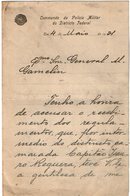 Commando da Policia Militar
do Districto Federal
4 de Maio
Exmo Snr. General M.
Gamelin
Tenho a honra
de accusar o rece
bimento dos regula
mentos, que, por inter
medio do distincto ca
marada Capitão
a gentileza de me